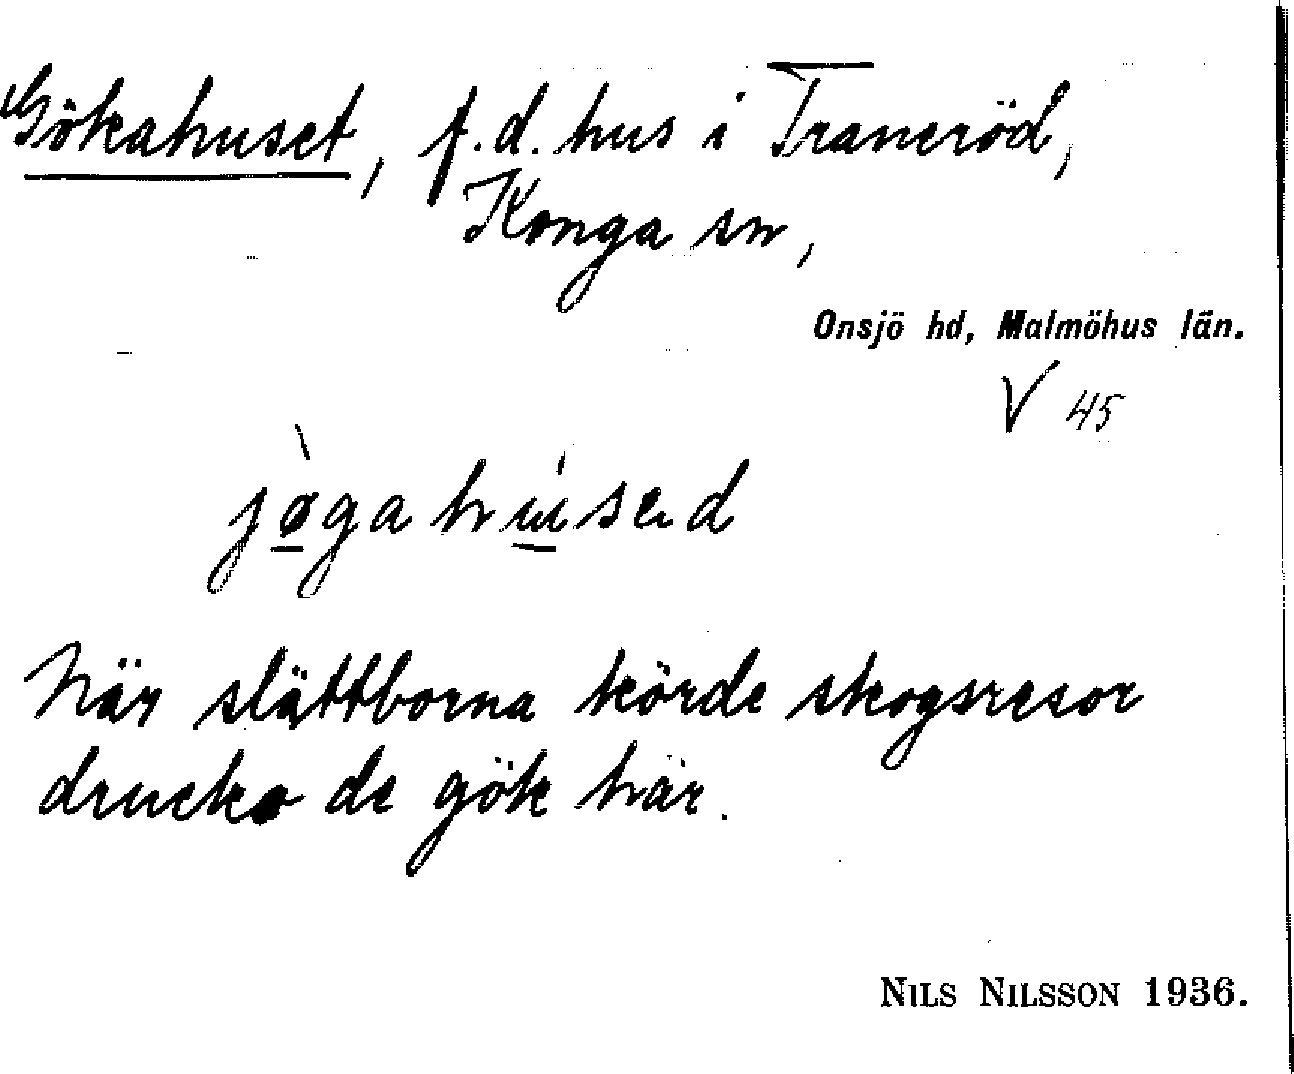 Gökahuset, f.d. hus i Traneröd,
Konga sn,
Onsjö hd, Malmöhus län.
V 45
jøgahused
När slättborna körde skogsresor
drucko de gök här.
NILS NILSSON 1936.